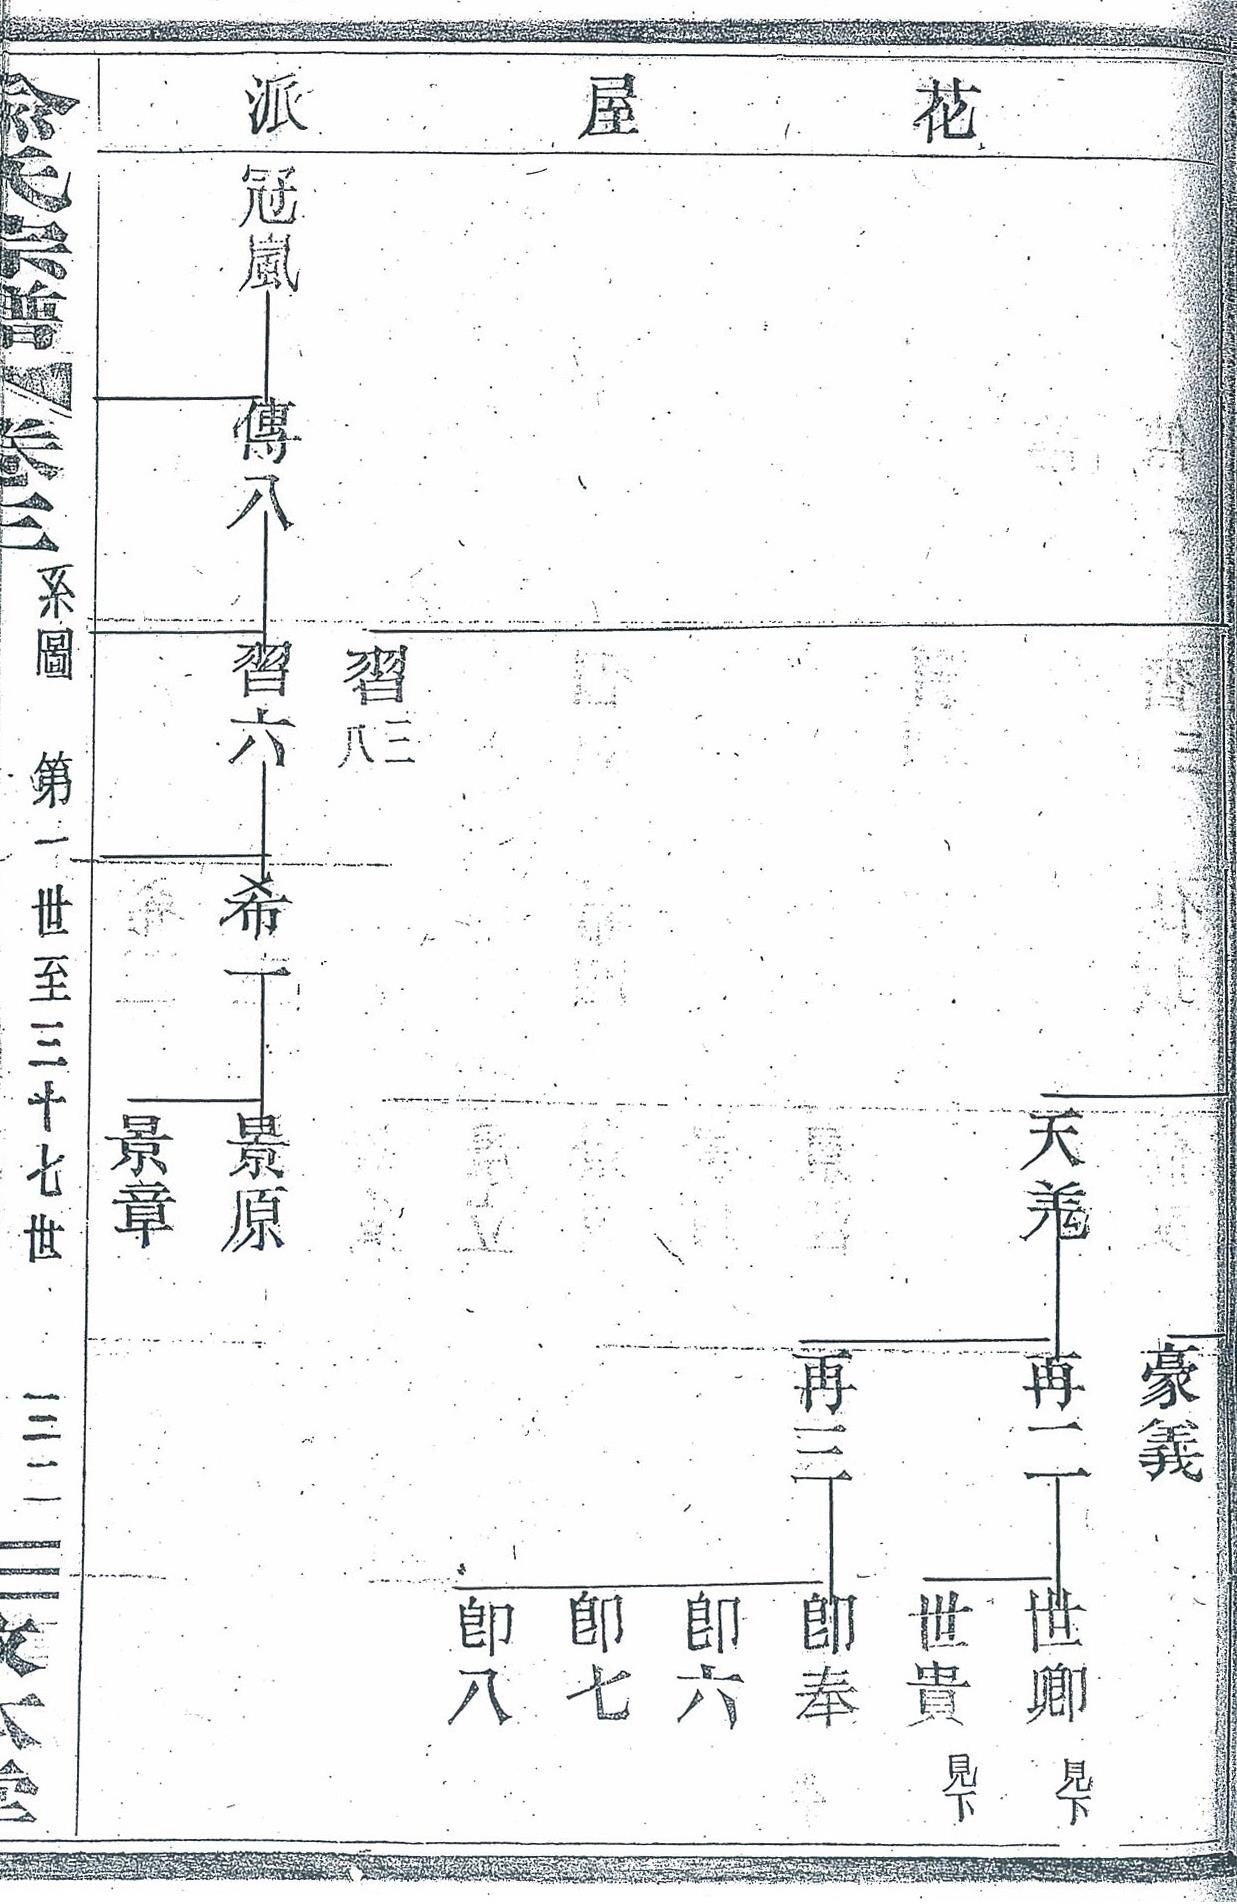 花屋派
豪義
天羗
再二
世卿 見下
世貴 見下
再三
卽奉
卽六
卽七
卽八
習三八
冠嵐
傳八
習六
希一
景原
景章
俞氏宗譜 卷三 系圖 第一世至三十七世 敦本堂